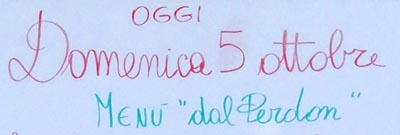 OGGI
Domenica 5 ottobre
MENÙ "dal Perdon"